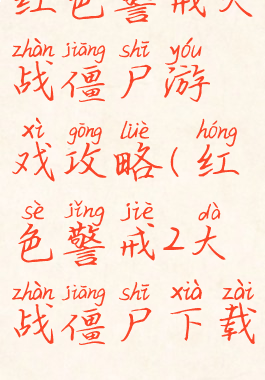 红色警戒大
zhàn jiāng shī yóu
战僵尸游
xì gōng lüè hóng
戏攻略(红
sè jǐng jiè dà
色警戒2大
zhàn jiāng shī xià zài
战僵尸下载